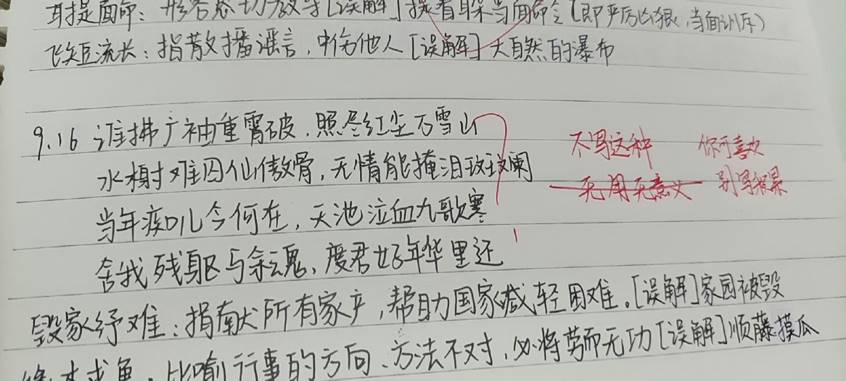 耳提面命：形容恳切教导[误解]揪着耳朵当面命令(即严厉凶狠,当面训斥)
飞短流长：指散播谣言，中伤他人[误解]大自然的瀑布
9.16 谁拂广袖重霄破，照尽红尘万雪山
水榭难囚仙傲骨，无情能掩泪玟阑
当年疾叽今何在，天池泣血九歌寒
舍我残躯与余魂，度君好年华里还
不写这种 你可喜欢
无用无意义 别写
毁家纾难：指献所有家产，帮助国家减轻困难。[误解]家园被毁
缘木求鱼，比喻行事的方向、方法不对，必将劳而无功[误解]顺藤摸瓜